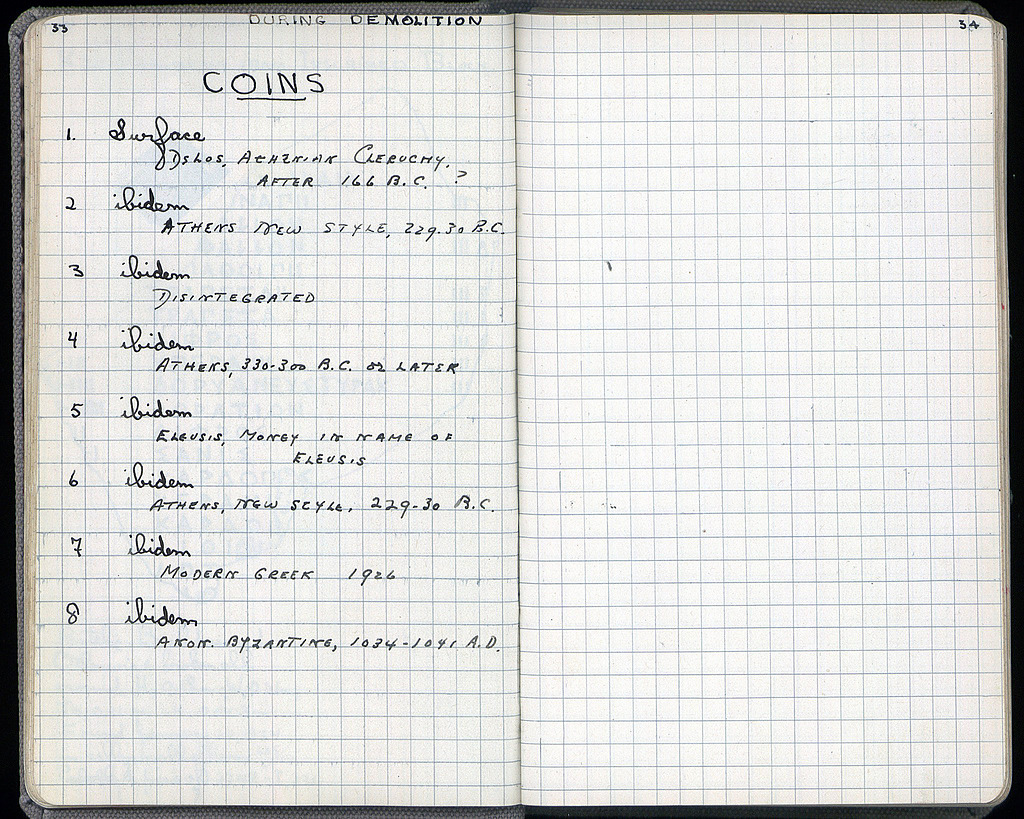 33
DURING DEMOLITION
34
COINS
1. Surface
DELOS, ATHENIAN CLERUCHY,
AFTER 166 B.C. ?
2 ibidem
ATHENS NEW STYLE, 229-30 B.C.
3 ibidem
DISINTEGRATED
4 ibidem
ATHENS, 330-300 B.C. OR LATER
5 ibidem
ELEUSIS, MONEY IN NAME OF
ELEUSIS
6 ibidem
ATHENS, NEW STYLE, 229-30 B.C.
7 ibidem
MODERN GREEK 1926
8 ibidem
ANON. BYZANTINE, 1034-1041 A.D.